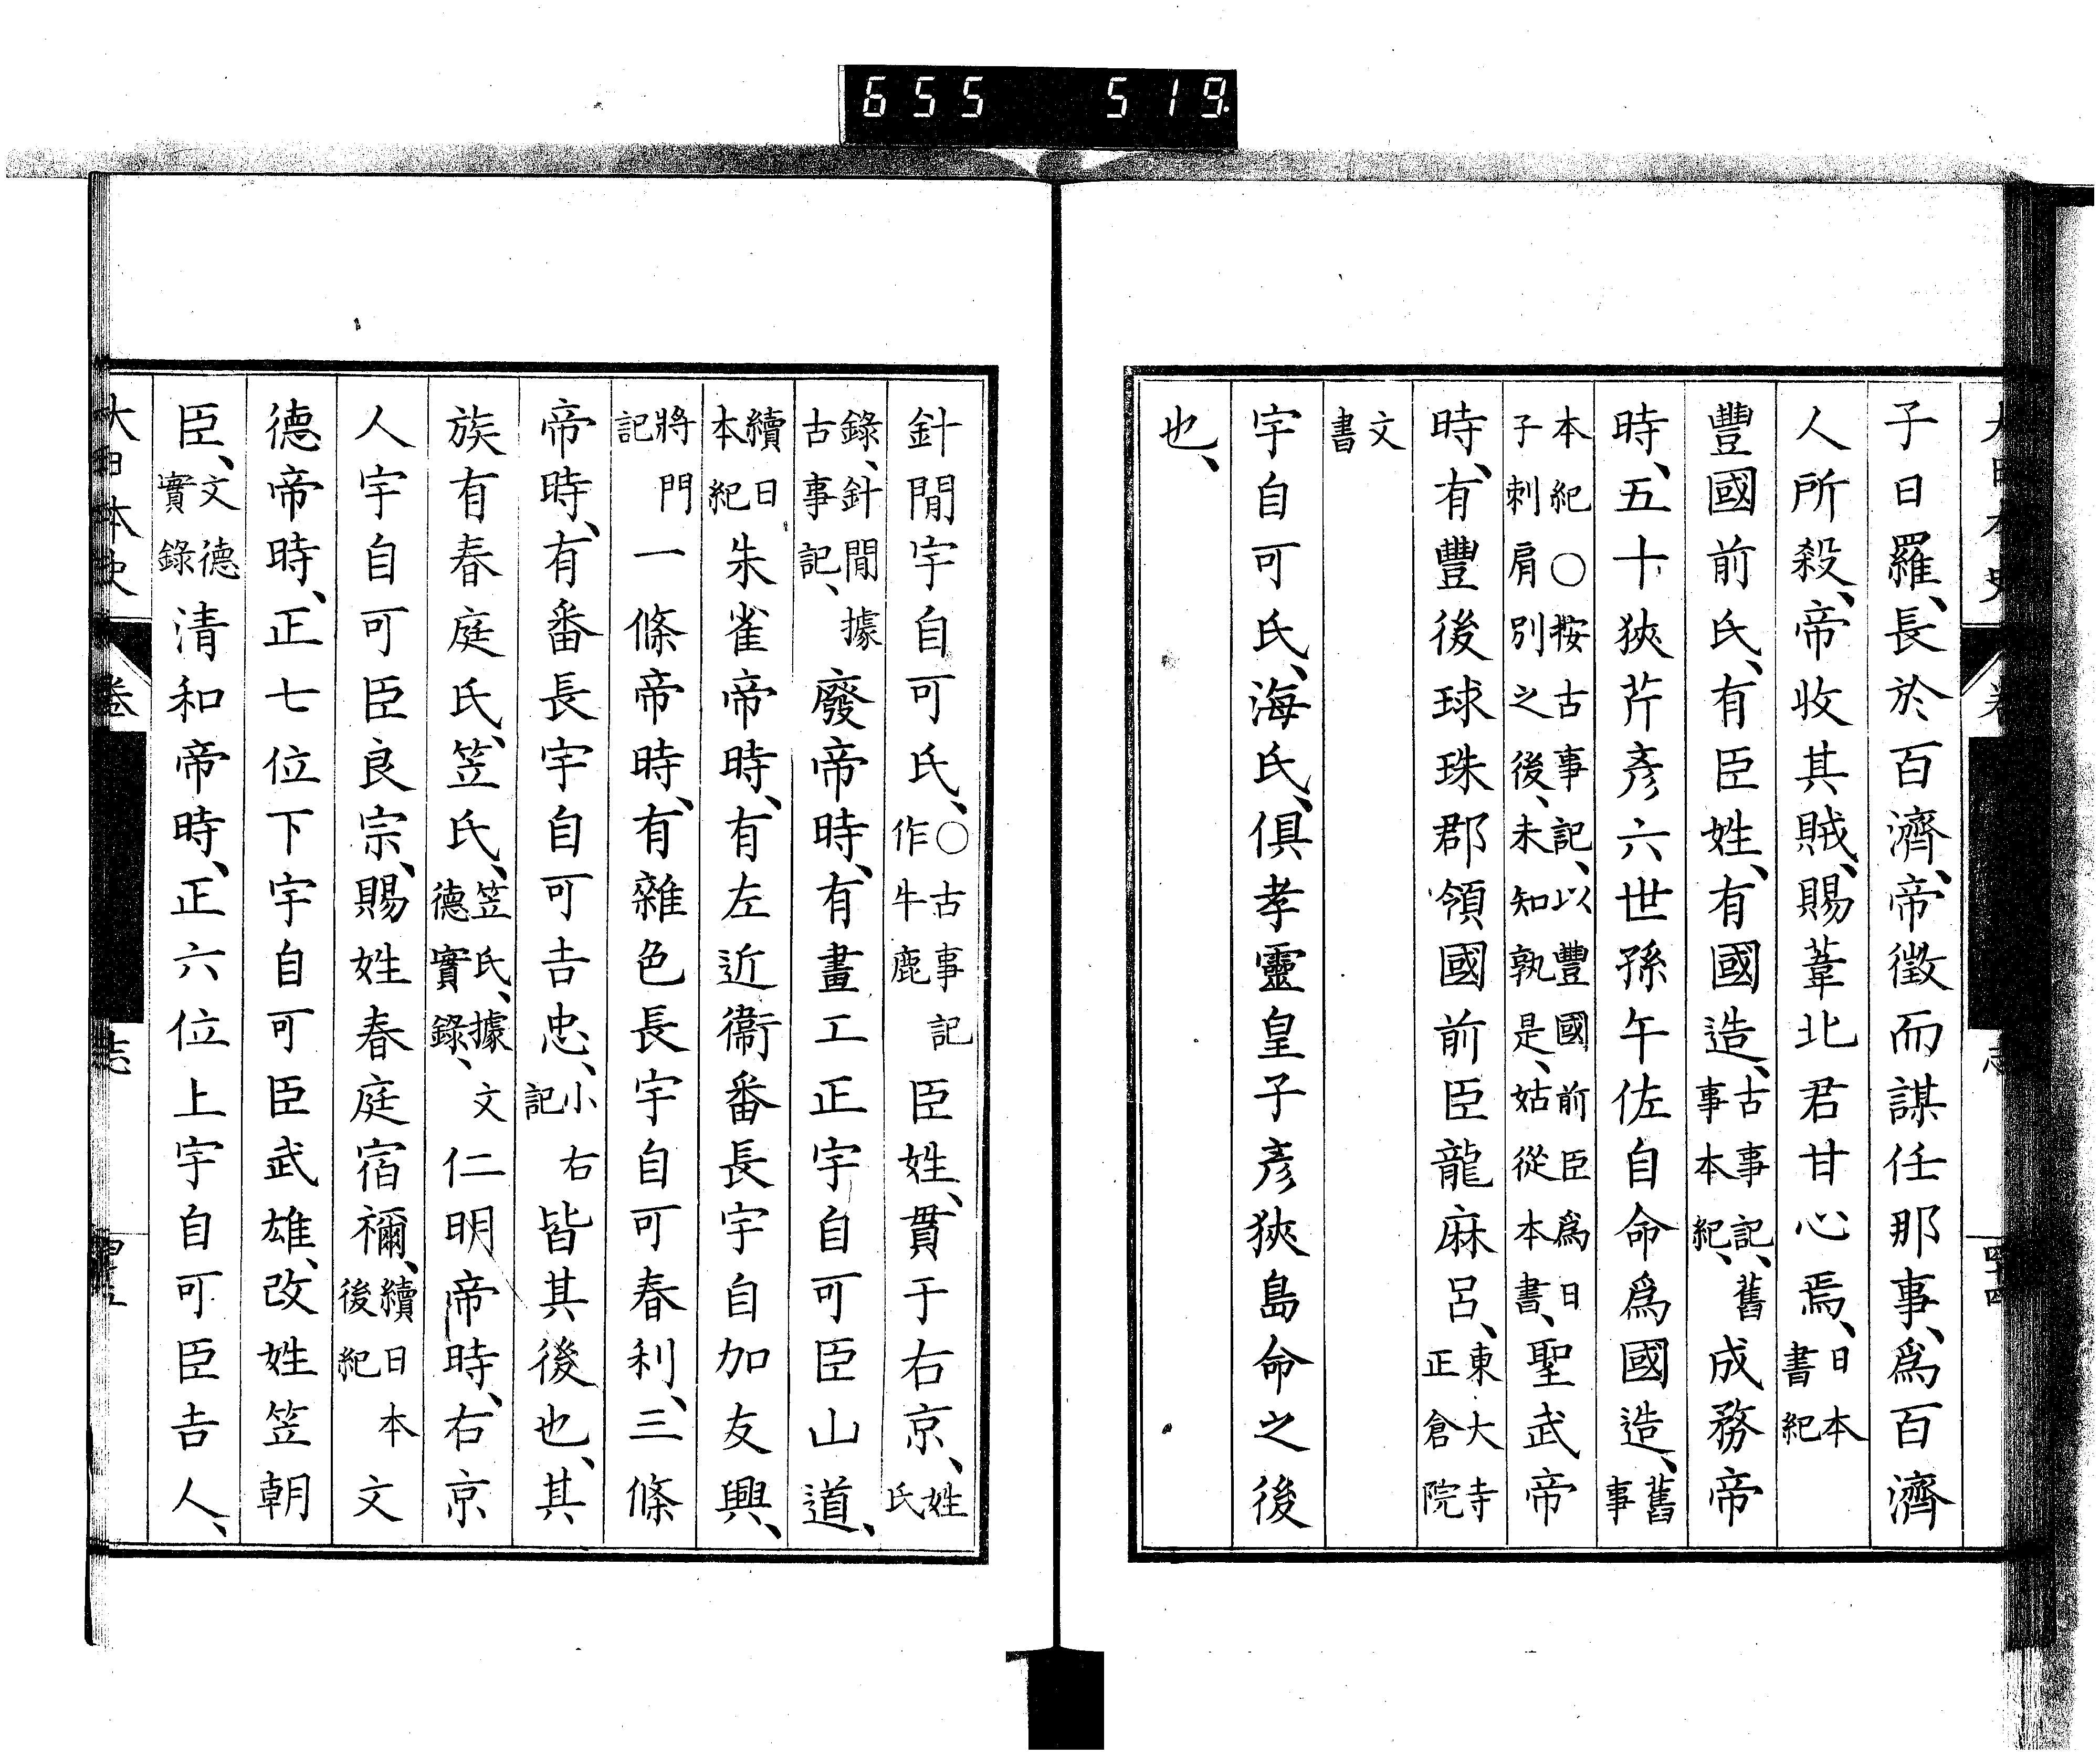 655 519
大日本史 卷 志 四十四
子日羅、長於百濟、帝徵而謀任那事、爲百濟
人所殺、帝收其賊、賜葦北君甘心焉、日本書紀
豐國前氏、有臣姓、有國造、古事記、舊事本紀、成務帝
時、五十狹芹彥六世孫午佐自命爲國造、舊事
本紀○按古事記、以豐國前臣爲日子刺肩別之後、未知孰是、姑從本書、聖武帝
時、有豐後球珠郡領國前臣龍麻呂、東大寺正倉院
文書
宇自可氏、海氏、俱孝靈皇子彥狹島命之後
也、
針閒宇自可氏、○古事記作牛鹿臣姓、貫于右京、姓氏
錄、針閒據古事記、廢帝時、有畫工正宇自可臣山道、
續日本紀朱雀帝時、有左近衞番長宇自加友興、
將門記一條帝時、有雜色長宇自可春利、三條
帝時、有番長宇自可吉忠、小右記皆其後也、其
族有春庭氏、笠氏、笠氏、據文德實錄、仁明帝時、右京
人宇自可臣良宗、賜姓春庭宿禰、續日本後紀文
德帝時、正七位下宇自可臣武雄、改姓笠朝
臣、文德實錄清和帝時、正六位上宇自可臣吉人、
大日本史 卷 志